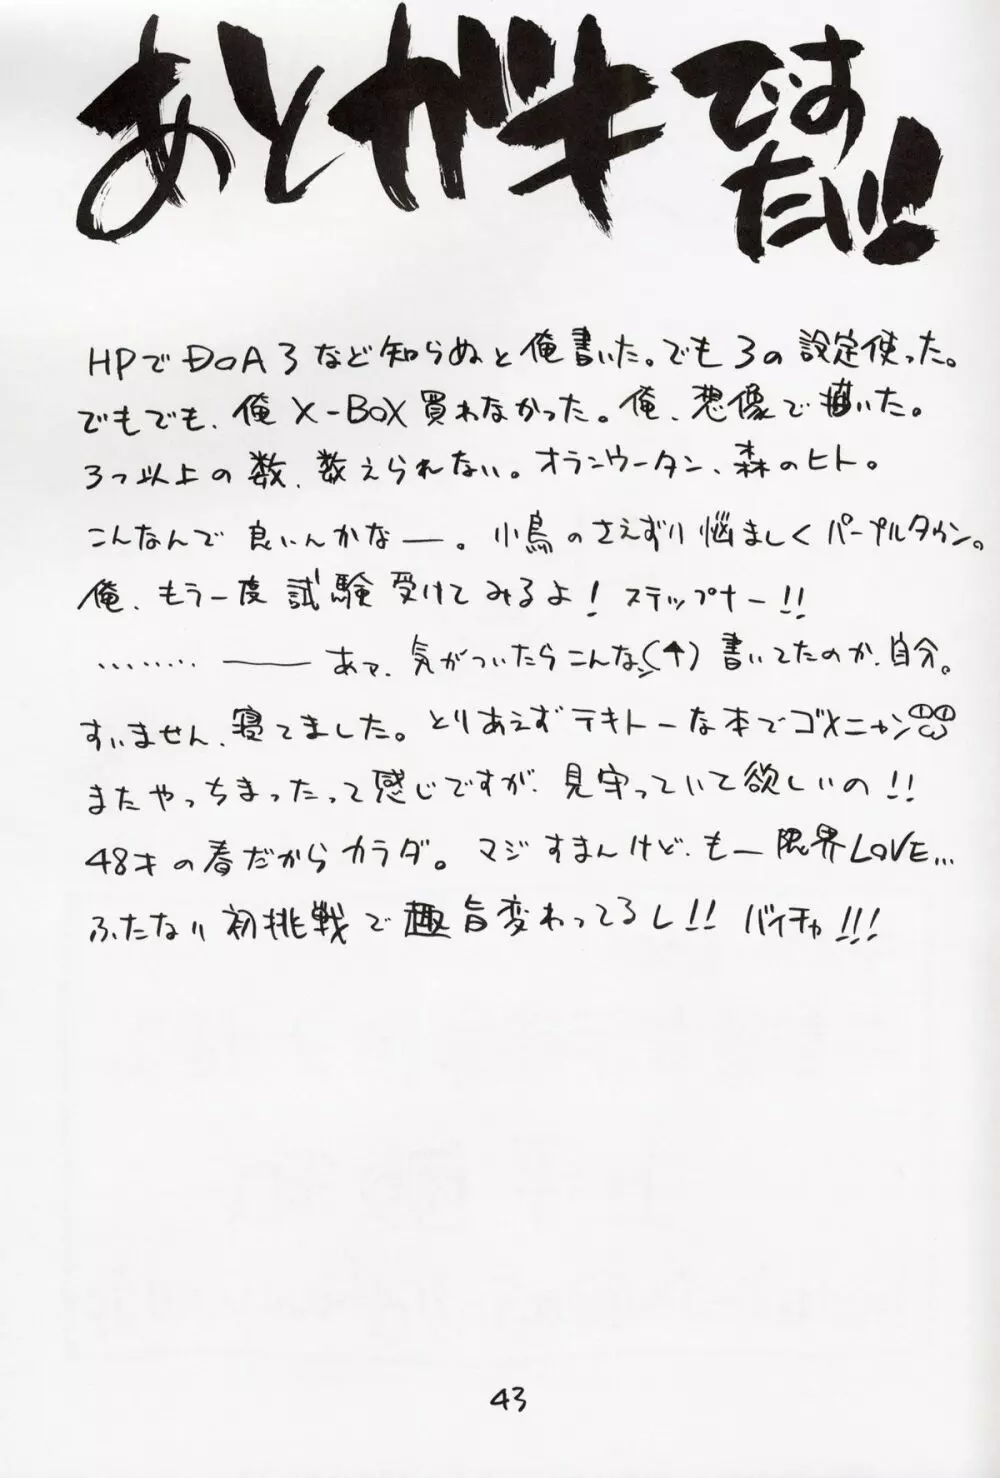 あとガキですたい!!
HPでDOA3など知らぬと俺書いた。でも3の設定使った。
でもでも、俺X-BOX買わなかった。俺、想像で描いた。
3つ以上の数、数えられない。オランウータン、森のヒト。
こんなんで良いんかなー。小鳥のさえずり悩ましくパープルタウン。
俺、もう一度試験受けてみるよ!ステップナー!!
‥‥‥‥ ―― あァ、気がついたらこんな(↑)書いてたのか、自分。
すいません、寝てました。とりあえずテキトーな本でゴメニャン
またやっちまったって感じですが、見守っていて欲しいの!!
48才の春だからカラダ。マジすまんけど、もー限界LOVE…
ふたなり初挑戦で趣旨変わってるし!!バイチャ!!!
43